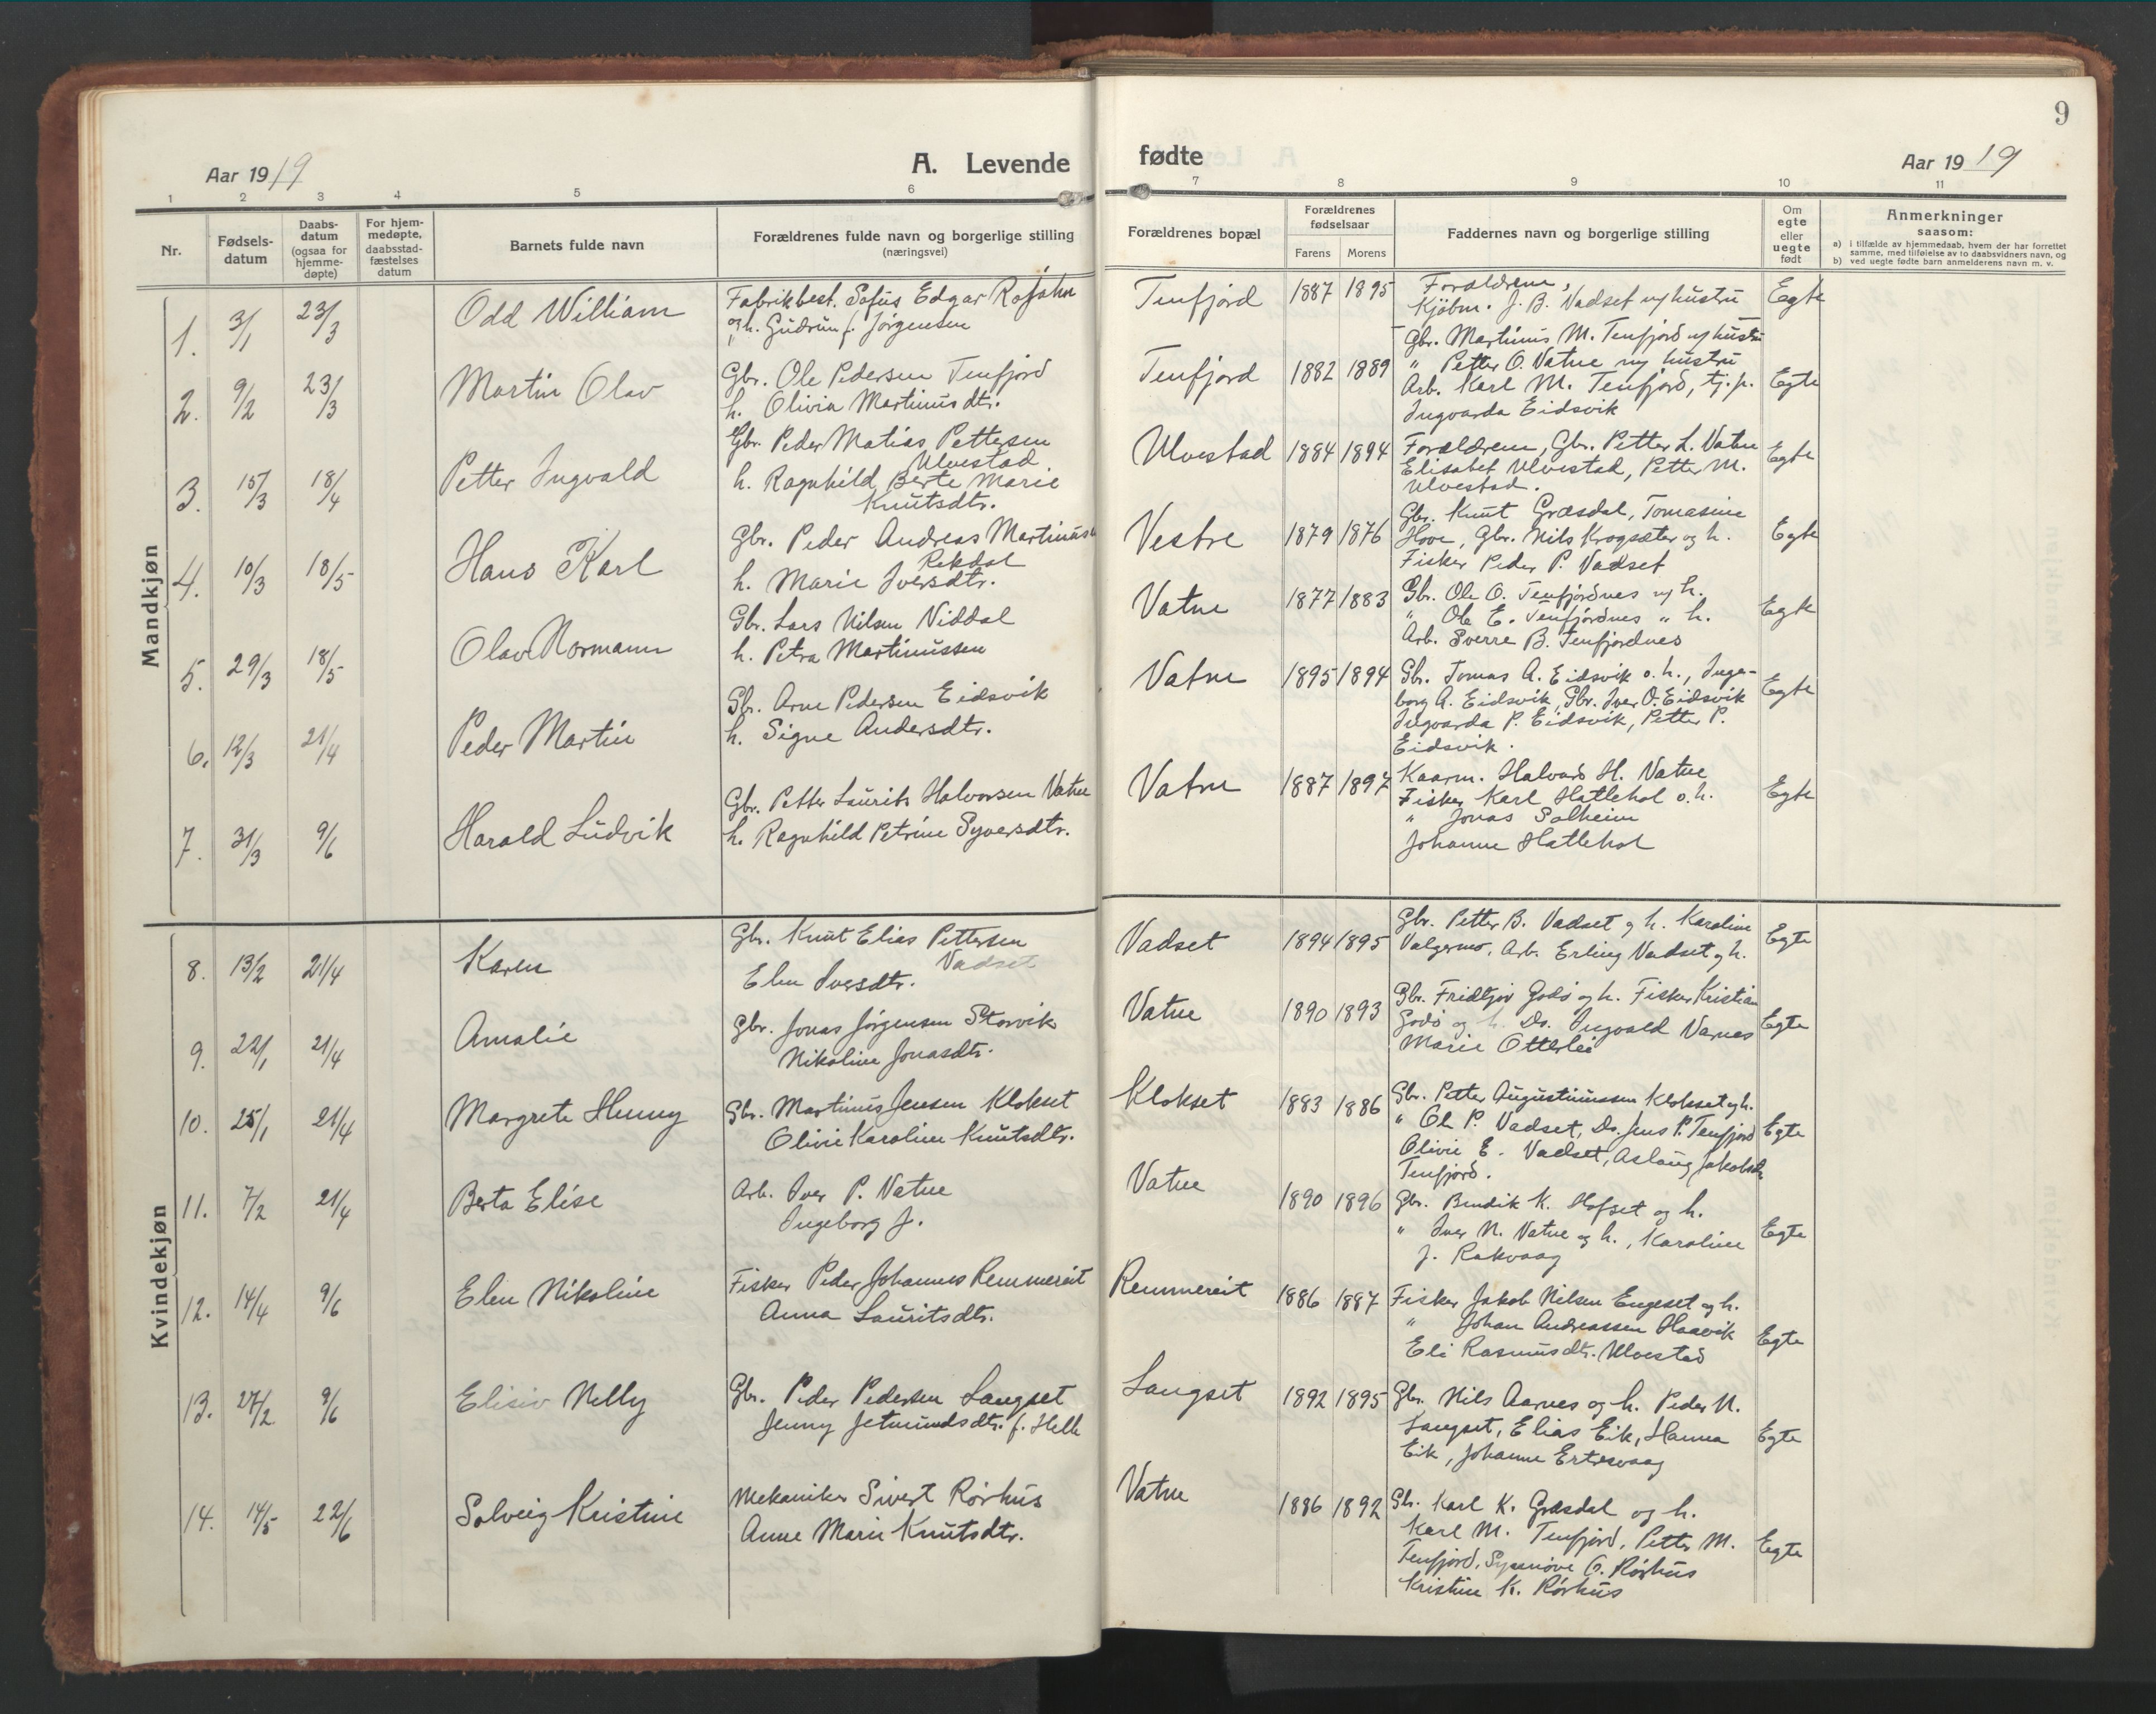 9
Aar 1919
A. Levende
fødte
Aar 1919
1 2 3 4 5 6 7 8 9 10 11
Nr.
Fødsels-
datum
Daabs-
datum
(ogsaa for
hjemme-
døpte)
For hjem-
medøpte,
daabsstad-
fæstelses
datum
Barnets fulde navn
Forældrenes fulde navn og borgerlige stilling
(næringsvei)
Forældrenes bopæl
Forældrenes
fødselsaar
Farens Morens
Faddernes navn og borgerlige stilling
Om
egte
eller
uegte
født
Anmerkninger
saasom:
a) i tilfælde av hjemmedaab, hvem der har forrettet
samme, med tilføielse av to daabsvidners navn, og
b) ved uegte fødte barn anmelderens navn m. v.
Mandkjøn
1. 3/1 23/3 Odd William
Fabrikbest. Sofus Edgar
og h. Gudrun f. Jørgensen
Tenfjord 1887 1895
Forældrene,
Kjøbm. J. B. Vadset og hustru
Egte
2. 9/2 23/3 Martin Olav
Gbr. Ole Pedersen Tenfjord
h. Olivia Martinusdtr.
Tenfjord 1882 1889
Gbr. Martinus M. Tenfjord og hustru
" Petter O. Vatne og hustru
Arb. Karl M. Tenfjord, tj.p.
Ingvarda Eidsvik
Egte
3. 15/3 18/4 Petter Ingvald
Gbr. Peder Matias Pettersen
Ulvestad
h. Ragnhild Berte Marie
Knutsdtr.
Ulvestad 1884 1894
Forældrene, Gbr. Petter L. Vatne
Elisabet Ulvestad, Petter M.
Ulvestad.
Egte
4. 10/3 18/5 Hans Karl
Gbr. Peder Andreas Martinus
Rekdal
h. Marie Iversdtr.
Vestre 1879 1876
Gbr. Knut Græsdal, Tomasine
Hove, Gbr. Nils Krogsæter og h.
Fisker Peder P. Vadset
Egte
5. 29/3 18/5 Olav Normann
Gbr. Lars Nilsen Niddal
h. Petra Martinussen
Vatne 1877 1883
Gbr. Ole O. Tenfjordnes og h.
" Ole E. Tenfjordnes " h.
Arb. Sverre B. Tenfjordnes
Egte
6. 12/3 21/4 Peder Martin
Gbr. Arne Pedersen Eidsvik
h. Signe Andersdtr.
Vatne 1895 1894
Gbr. Tomas A. Eidsvik o.h., Inge-
borg A. Eidsvik, Gbr. Iver O. Eidsvik
Ingvarda P. Eidsvik, Petter P.
Eidsvik.
Egte
7. 31/3 9/6 Harald Ludvik
Gbr. Petter Laurits Halvorsen Vatne
h. Ragnhild Petrine Syversdtr.
Vatne 1887 1897
Kaarm. Halvard H. Vatne
Fisker Karl Hatlehol o.h.
" Jonas Solheim
Johanne Hatlehol
Egte
Kvindekjøn
8. 13/2 21/4 Karen
Gbr. Knut Elias Pettersen
Vadset
Elen Iversdtr.
Vadset 1894 1895
Gbr. Petter B. Vadset og h. Karoline
Valgermo, Arb. Erling Vadset og h.
Egte
9. 22/1 21/4 Amalie
Gbr. Jonas Jørgensen Storvik
Nikoline Jonasdtr.
Vatne 1890 1893
Gbr. Fridtjov Godø og h. Fisker Kristian
Godø og h. Dr. Ingvald Varnes
Marie Otterlei
Egte
10. 25/1 21/4 Margrete Henny
Gbr. Martinus Jensen Klokset
Olivie Karoline Knutsdtr.
Klokset 1883 1886
Gbr. Petter Augustinussen Klokset og h.
" Ole P. Vadset, Dr. Jens P. Tenfjord
Olivie E. Vadset, Aslaug Jakobsdtr
Tenfjord.
Egte
11. 7/2 21/4 Berta Elise
Arb. Iver P. Vatne
Ingeborg J.
Vatne 1890 1896
Gbr. Bendik K. Hofset og h.
" Iver N. Vatne og h., Karoline
J. Rakvaag
Egte
12. 14/4 9/6 Elen Nikoline
Fisker Peder Johannes Remmereit
Anna Lauritsdtr.
Remmereit 1886 1887
Fisker Jakob Nilsen Engeset og h.
" Johan Andreassen Haavik
Eli Rasmusdtr. Ulvestad
Egte
13. 27/2 9/6 Elisiv Nelly
Gbr. Peder Pedersen Langset
Jenny Jetmundsdtr. f. Helle
Langset 1892 1895
Gbr. Nils Aarnes og h. Peder N.
Langset, Elias Eik, Hanna
Eik, Johanne Ertesvaag
Egte
14. 14/5 22/6 Solveig Kristine
Mekaniker Sivert Rørhus
Anne Marie Knutsdtr.
Vatne 1886 1892
Gbr. Karl K. Græsdal og h.
Karl M. Tenfjord, Petter M.
Tenfjord, Synnøve O. Rørhus
Kristine K. Rørhus
Egte